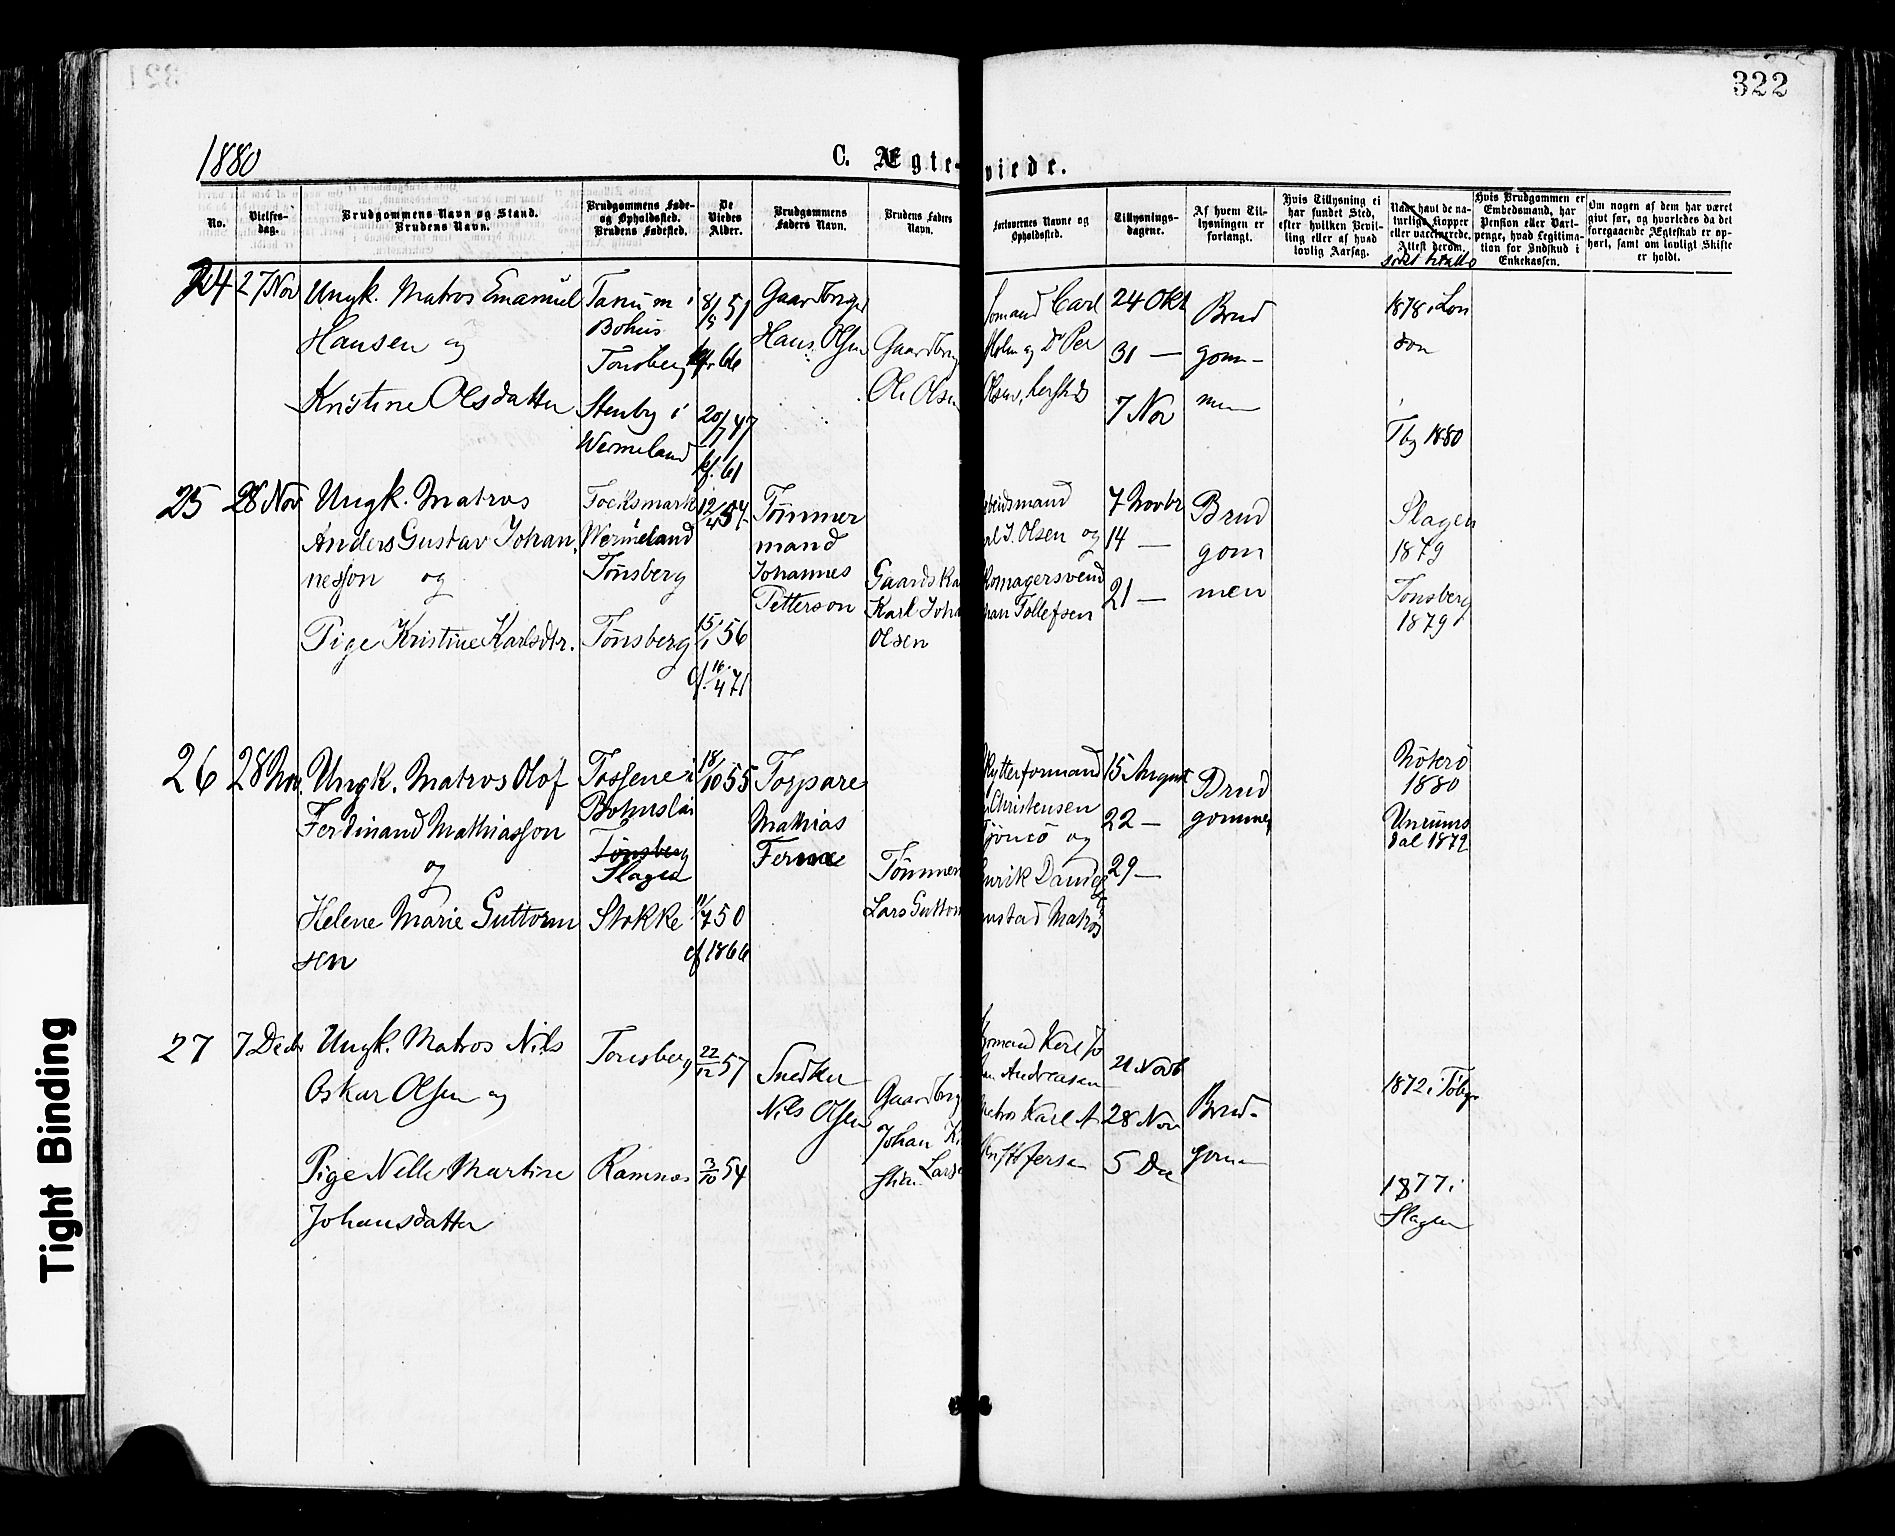 322
1880
C. Ægte-viede.
No.
Vielses-
dag.
Brudgommens Navn og Stand.
Brudens Navn.
Brudgommens Føde-
og Opholdssted.
Brudens Fødested.
De
Viedes
Alder.
Brudgommens
Faders Navn.
Brudens Faders
Navn.
Forlovernes Navne og
Opholdssted.
Tillysnings-
dagene.
Af hvem Til-
lysningen er
forlangt.
Hvis Tillysning ei
har fundet Sted,
efter hvilken Bevil-
ling eller af hvad
lovlig Aarsag.
Naar havt de na-
turlige Kopper
eller vaccinerede.
Attest derom.
sidst
Hvis Brudgommen er
Embedsmand, har
Pension eller Vart-
penge, hvad Legitima-
tion for Indskud i
Enkekassen.
Om nogen af dem har været
givt før, og hvorledes da det
foregaaende Ægteskab er op-
hørt, samt om lovligt Skifte
er holdt.
24
27 Nov
Ungk. Matros Emanuel
Hansen og
Kristine Olsdatter
Tanum i
Bohus
Tonsberg
Stenby i
Wermeland
8/5 51
66
20/7 47
cf. 61
Gaardbrug
Hans Olsen
Gaardbrug
Ole Olsen
Formand Carl
Holm og Do Per
Olsen,
24 Okt
31 —
7 Nov
Brud
gom-
men
1878 i Lon
don
Tbg 1880
25
28 Nov
Ungk. Matros
Anders Gustav Johan
nesson og
Pige Kristine Karlsdtr.
Focksmark
Wermeland
Tönsberg
Tönsberg
12/4 54
15/1 56
cf. 16/4 71
Tömmer
mand
Johannes
Petterson
Gaardska
Karl Joha
Olsen
beidsmand
rl J. Olsen og
komagersvend
han Tollefsen
7 Novbr
14 —
21 —
Brud
gom
men
Slagen
1879
Tonsberg
1879
26
28 Nov.
Ungk. Matros Olof
Ferdinand Mathiasson
og
Helene Marie Guttorm
sen
Tossene i
Bohuslän
Tönsberg
Slagen
Stokke
18/10 55
11/7 50
cf 1866
Torpare
Mathias
Ferm
Tömmerm
Lars Guttorm
Flytterformand
Christensen
Tjömö og
enrik Daniel
nstad Matros
15 August
22 —
29 —
Brud
gommen
Nöterö
1880
Unrums
dal 1872
27
7 Decbr
Ungk. Matros Nils
Oskar Olsen og
Pige Nelle Martine
Johansdatter
Tonsberg
Ramnæs
22/12 57
3/10 54
Snedker
Nils Olsen
Gaardbrug
Johan Kri
stian Larse
Formand Karl Jo
han Andreasen
Matros Karl A
Kristoffersen
21 Novb
28 Nov
5 Dec
Brud-
gomm
1872 i Tøbg.
1877 i
Slagen
Tight Binding